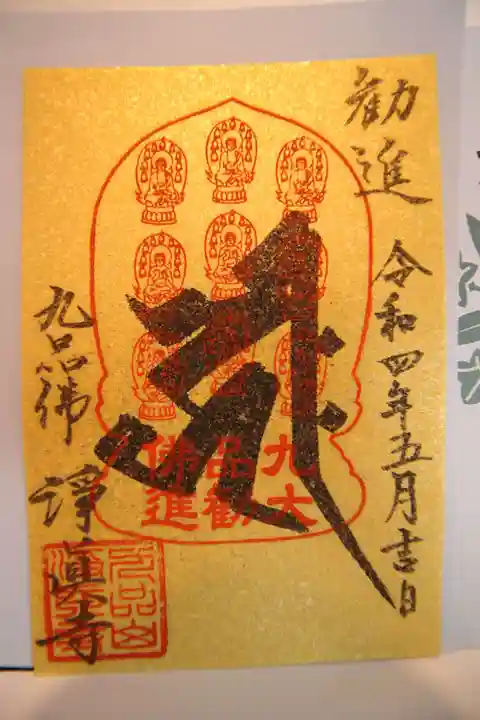 勧進
令和四年五月吉日
九大
品勧
佛進
九品佛
浄真寺